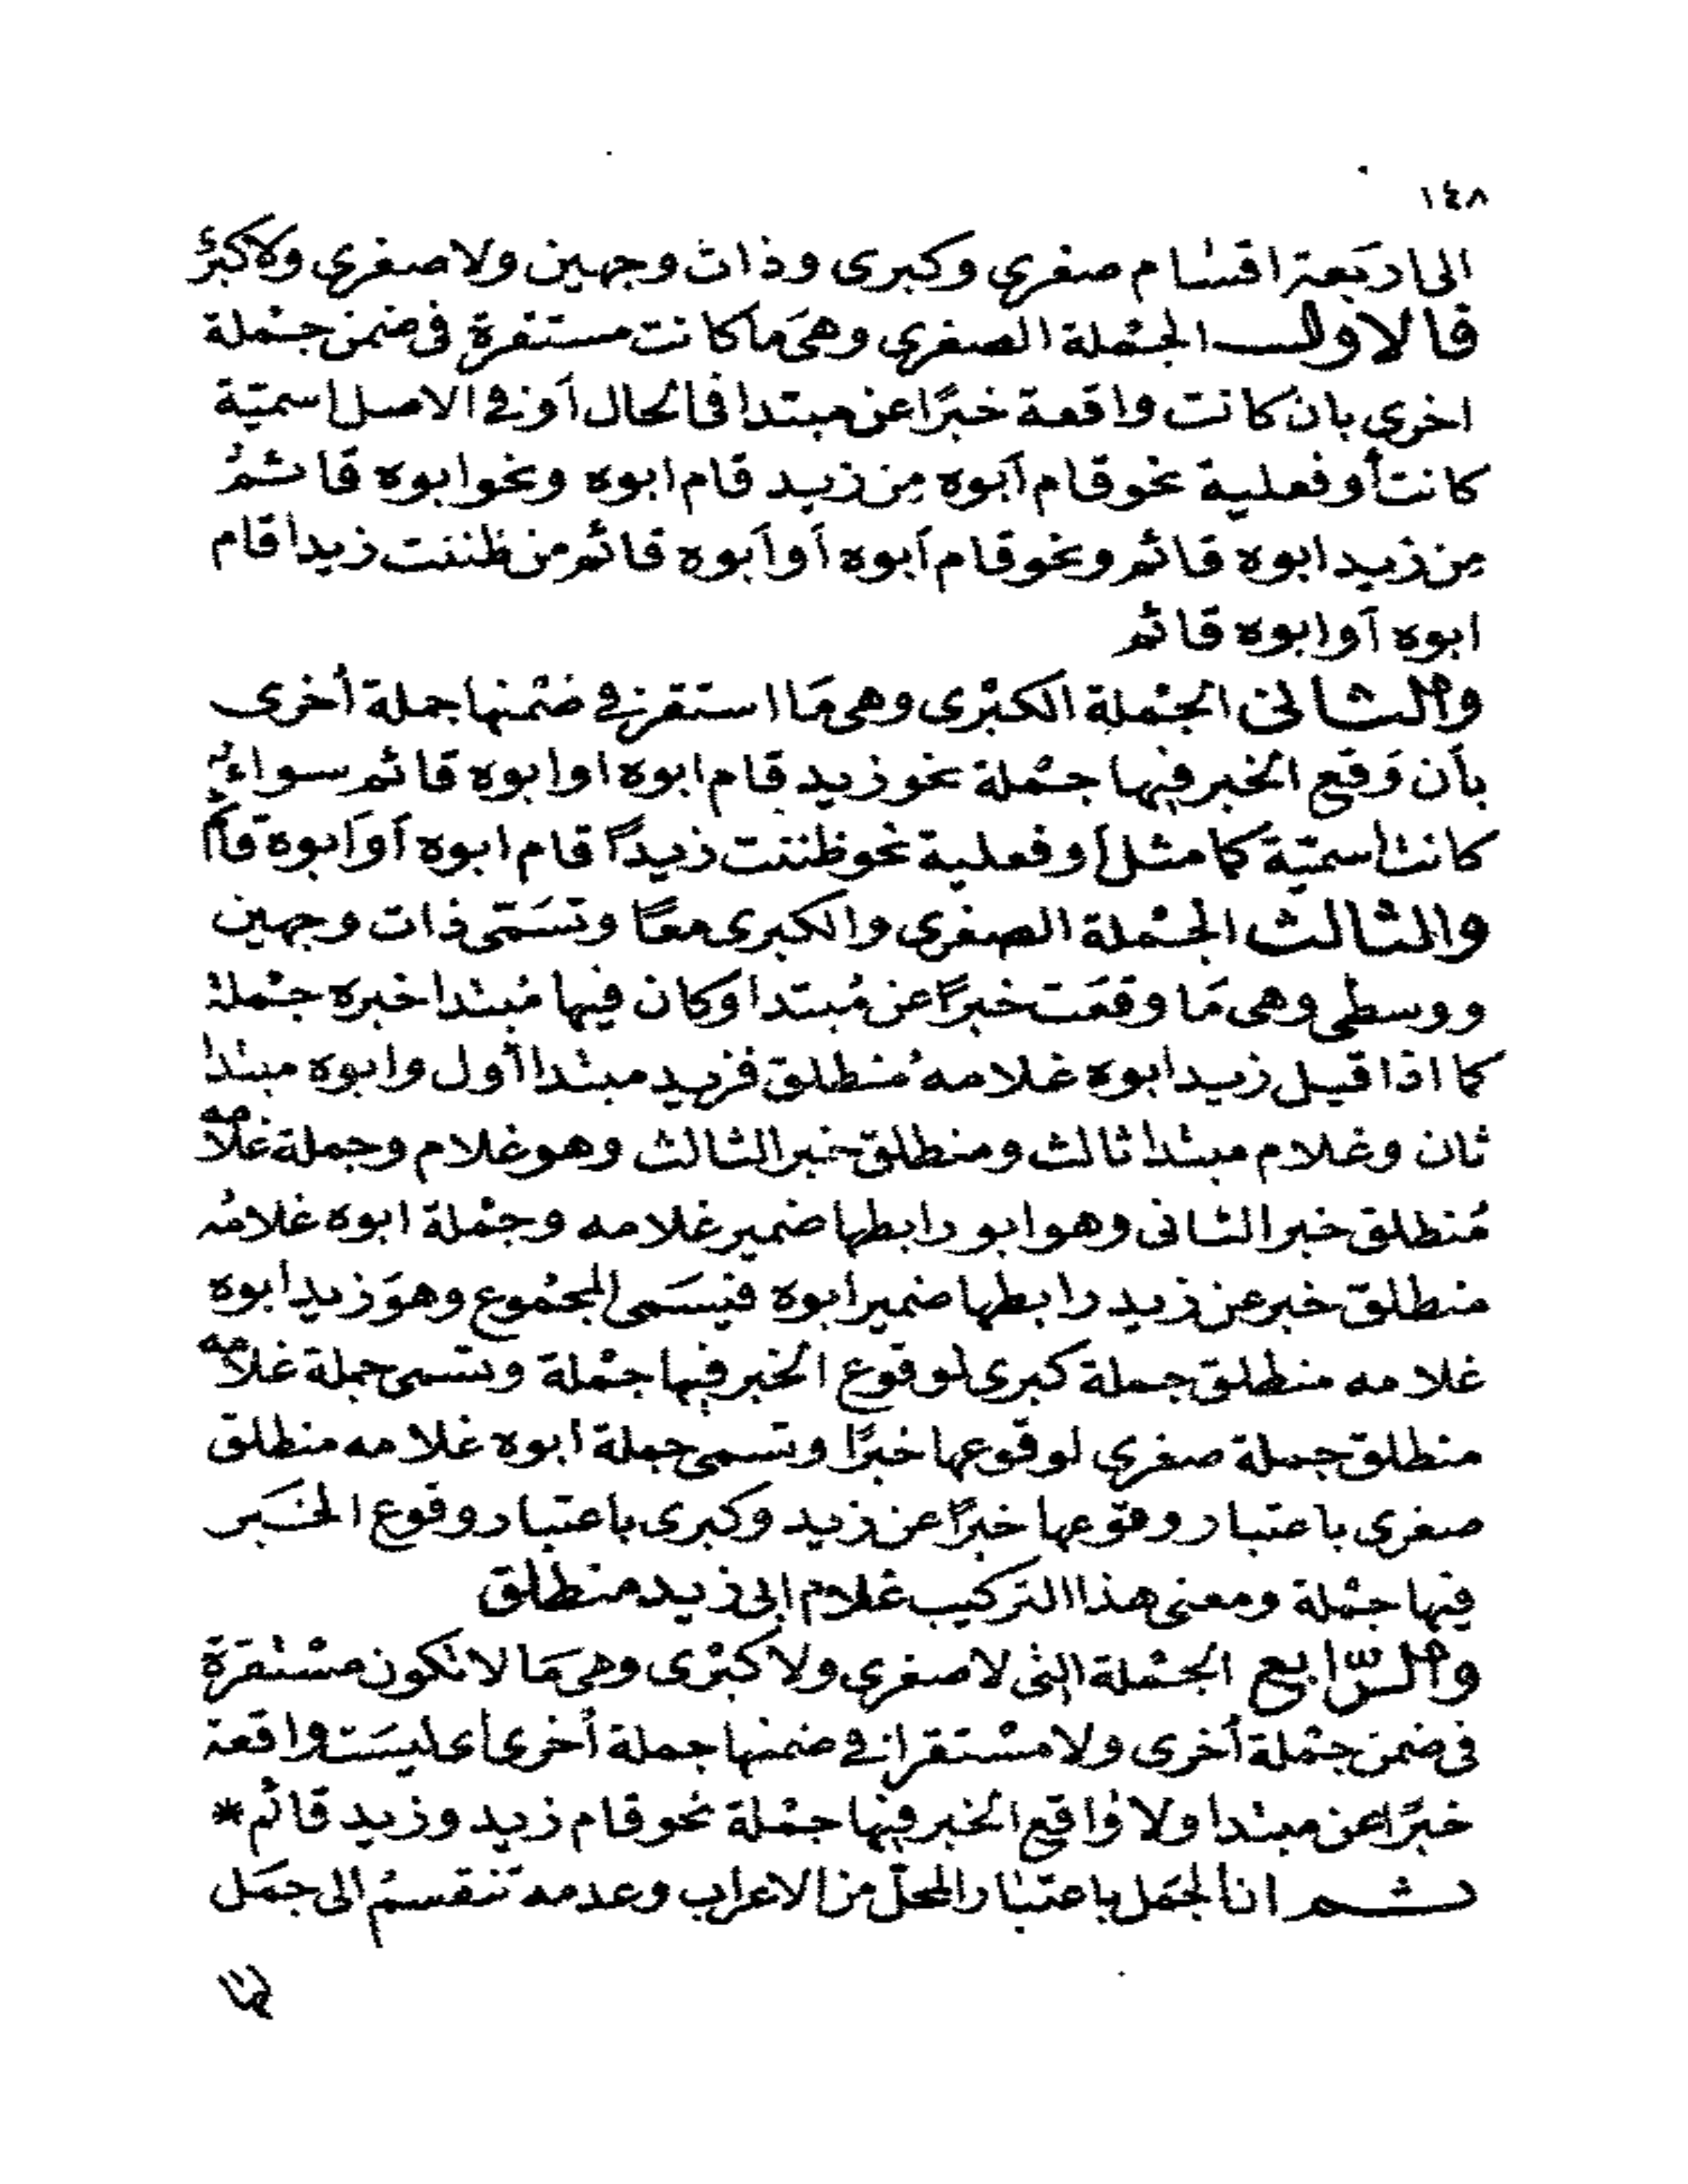 ١٤٨
الى اربَعة اقسام صغرى وكبرى وذات وجهين ولا صغرى ولا كبرى
فالاول الجمْلة الصغرى وهىَ ما كانت مستقرة فى ضمن جمْلة
اخرى بان كانت واقعة خبرًا عن مبتدا فى الحال أو فى الاصل اسميّة
كانت أو فعلية نحو قام أبوه مِن زيد قام ابوه ونحو ابوه قائمُ
مِن زيد ابوه قائم ونحو قام أبوه أو أبوه قائم من ظننت زيدا قام
ابوه أو ابوه قائم
والثانى الجمْلة الكبْرى وهى مَا استقر فى ضمْنها جملة أخرى
بأن وَقع الخبر فيها جمْلة نحو زيد قام ابوه او ابوه قائم سواءٌ
كانت اسميّة كما مثل أو فعلية نحو ظننت زيدًا قام ابوه أو أبوه قائم
والثالث الجمْلة الصغرى والكبرى معًا وتسَمّى ذات وجهين
ووسطى وهى مَا وقعَت خبرًا عن مُبتدا وكان فيها مُبتدا خبره جمْلة
كما اذا قيل زيد ابوه غلامهُ مُنطلق فزيد مبتدا أول وابوه مبتدا
ثان وغلام مبتدا ثالث ومنطلق خبر الثالث وهو غلام وجملة غلامه
مُنطلق خبر الثانى وهو ابو رابطها ضمير غلامه وجمْلة ابوه غلامُه
منطلق خبر عن زيد رابطها ضمير أبوه فيسَمى المجمُوع وهوَ زيد ابوه
غلامه منطلق جملة كبرى لوقوع الخبر فيها جمْلة وتسمى جملة غلامه
منطلق جملة صغرى لوقوعها خبرًا وتسمى جملة ابوه غلامه منطلق
صغرى باعتبار وقوعها خبرًا عن زيد وكبرى باعتبار وقوع الخبَر
فيها جمْلة ومعنى هذا التركيب غلام ابى زيد منطلق
والرّابع الجمْلة التى لا صغرى ولا كبْرى وهى مَا لا تكون مسْتقرة
فى ضمن جمْلة أخرى ولا مسْتقرا فى ضمنها جملة أخرى اى ليسَت واقعة
خبرًا عن مبتدا ولا وَاقع الخبر فيها جمْلة نحو قام زيد وزيد قائم *
ثم ان الجمَل باعتبار المحلّ من الاعراب وعدمه تنقسمُ الى جمَل
لها